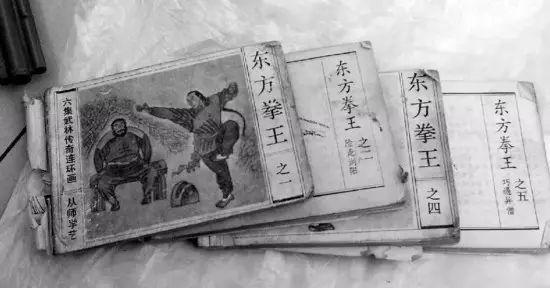 六集武林传奇连环画
从师学艺
东方拳王
之一
东方拳王
之二
东方拳王
之四
东方拳王
之五
巧遇异僧